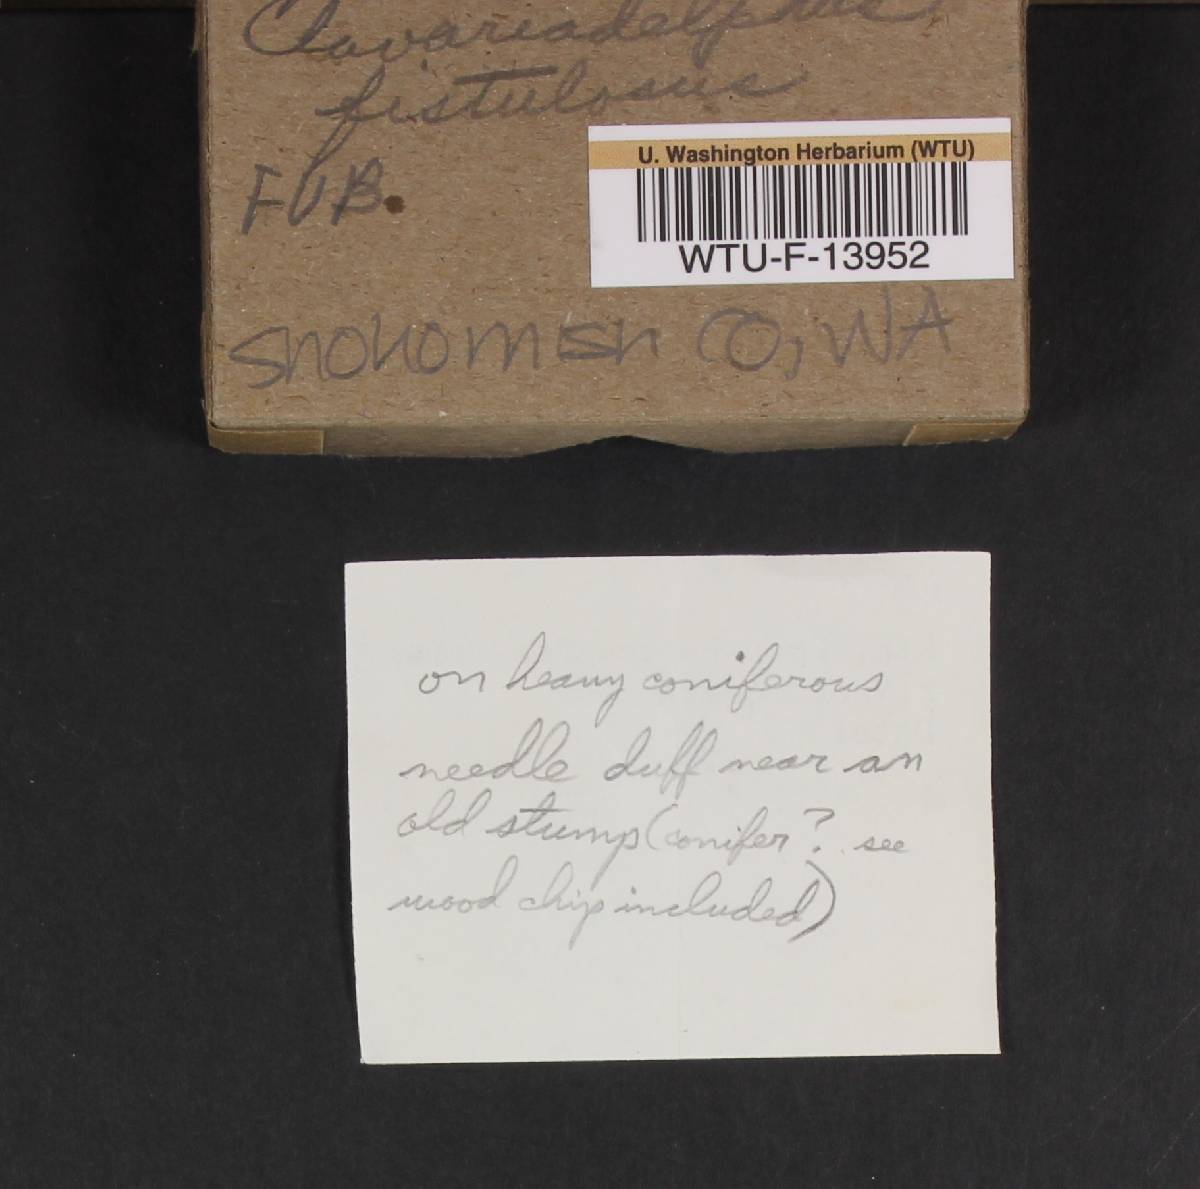 Clavariadelphus
fistulosus
FVB.
U. Washington Herbarium (WTU)
WTU-F-13952
SNOHOMISH CO, WA
on heavy coniferous
needle duff near an
old stump (conifer? see
wood chip included)